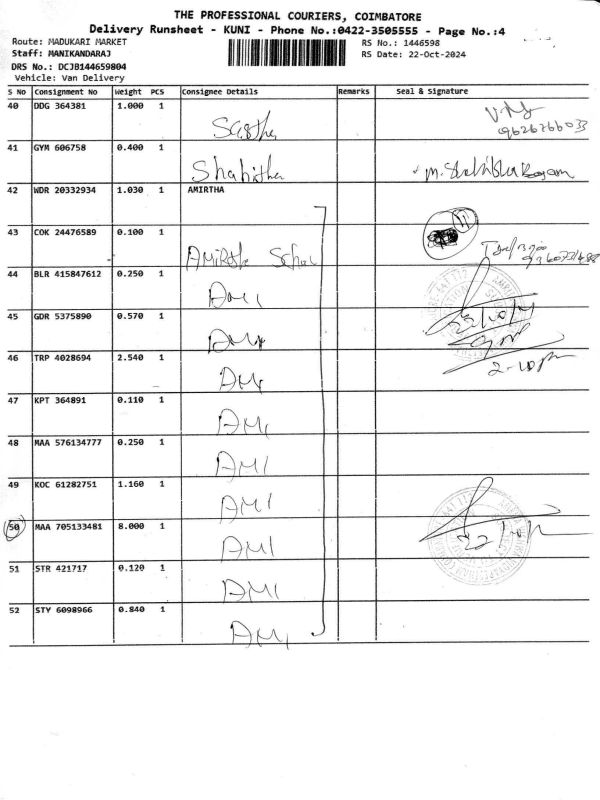 THE PROFESSIONAL COURIERS, COIMBATORE
Delivery Runsheet - KUNI - Phone No.:0422-3505555 - Page No.:4
Route: MADUKARI MARKET
RS No.: 1446598
Staff: MANIKANDARAJ
RS Date: 22-Oct-2024
DRS No.: DCJB144659804
Vehicle: Van Delivery
S No Consignment No Weight PCS Consignee Details Remarks Seal & Signature
40 DDG 364381 1.000 1
9626766033
41 GYM 606758 0.400 1 Shabitha
42 WDR 20332934 1.030 1 AMIRTHA
43 COK 24476589 0.100 1 AMiRtha School
44 BLR 415847612 0.250 1 AMI
45 GDR 5375890 0.570 1 AMI
22/10/24
46 TRP 4028694 2.540 1 AMI
2-10pm
47 KPT 364891 0.110 1 AMI
48 MAA 576134777 0.250 1 AMI
49 KOC 61282751 1.160 1 AMI
50 MAA 705133481 8.000 1 AMI
51 STR 421717 0.120 1 AMI
52 STY 6098966 0.840 1 AMI